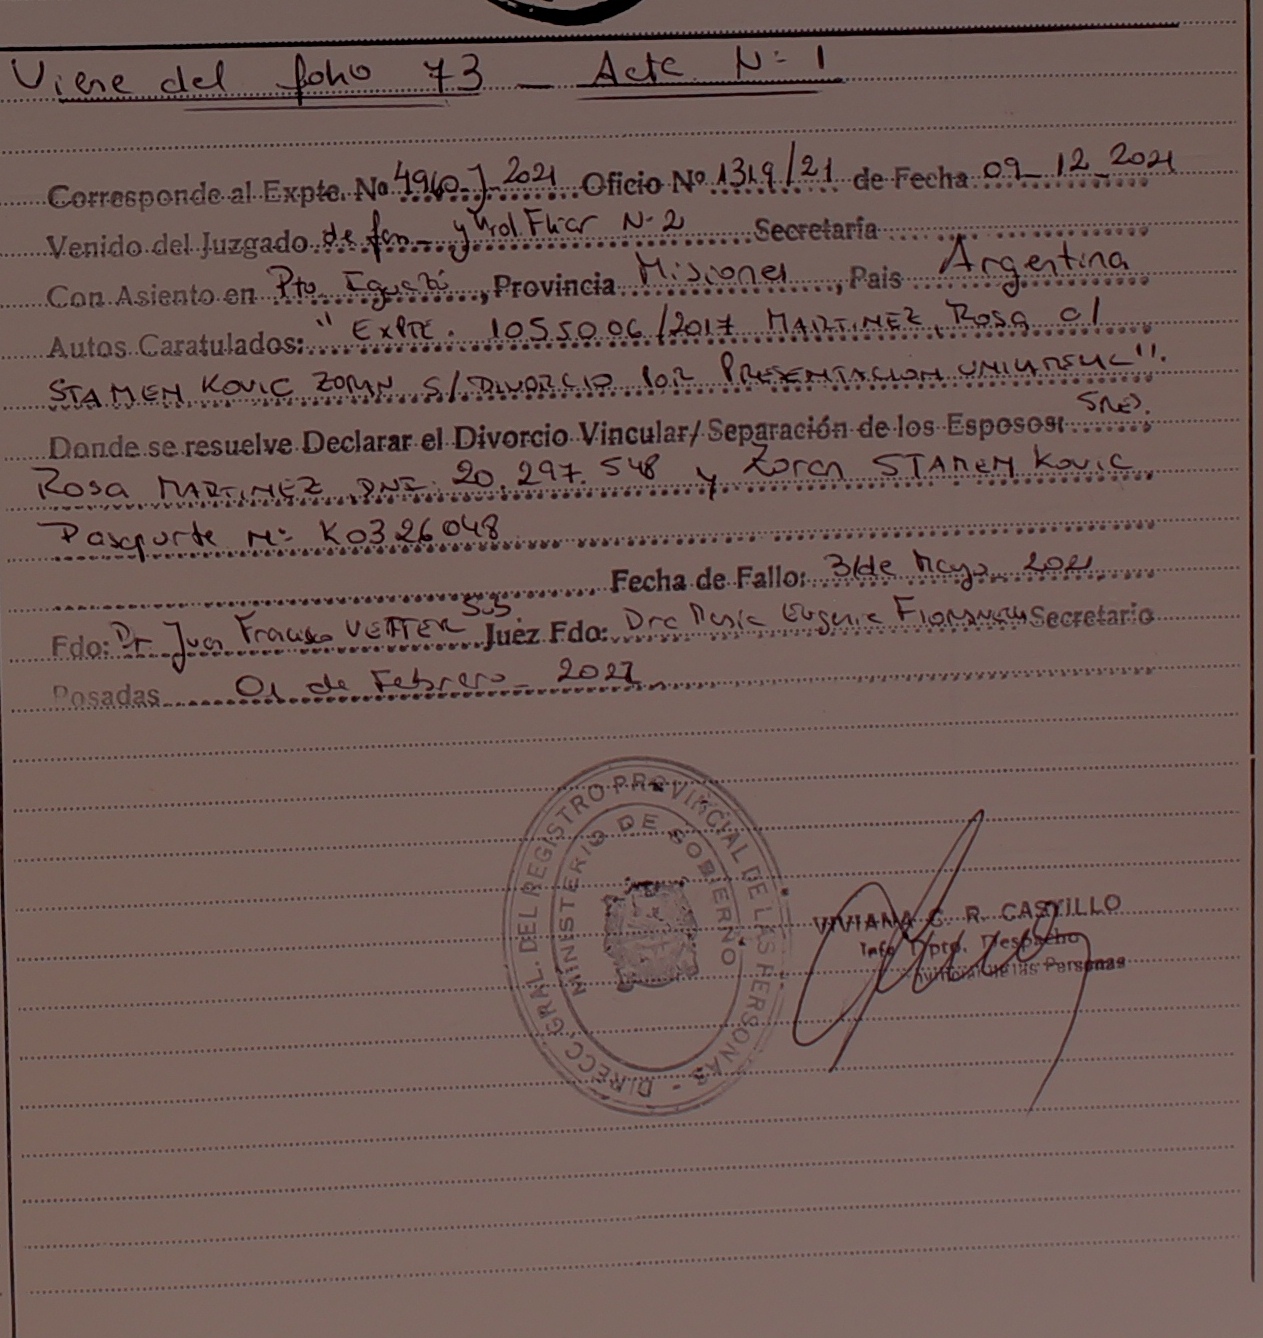 Viene del folio 73 — Acta N° 1
Corresponde al Expte. No 4960-J-2021 Oficio Nº 1319/21 de Fecha 09-12-2021
Venido del Juzgado de fam_ y Viol. Fliar N-2 Secretaria
Con Asiento en Pto. Iguazú, Provincia Misiones, Pais Argentina
Autos Caratulados: "EXPTE. 1055006/2017 MARTINEZ, ROSA c/
STAMENKOVIC ZORAN S/DIVORCIO POR PRESENTACION UNILATERAL".
Donde se resuelve Declarar el Divorcio Vincular/Separación de los Esposos: SRES.
Rosa MARTINEZ DNI. 20.297.548 y Zoran STAMENKOVIC
Pasaporte N° K0326048
Fecha de Fallo: 31 de Mayo 2021
Fdo: Dr. Juan Francisco VETTER S.S. Juez Fdo: Dra María Eugenia Secretario
Posadas 01 de Febrero_
DIRECC. GRAL. DEL REGISTRO PROVINCIAL DE LAS PERSONAS -
MINISTERIO DE GOBIERNO
VIVIANA C. R. CASTILLO
Dpto. Despacho
Provincial de las Personas